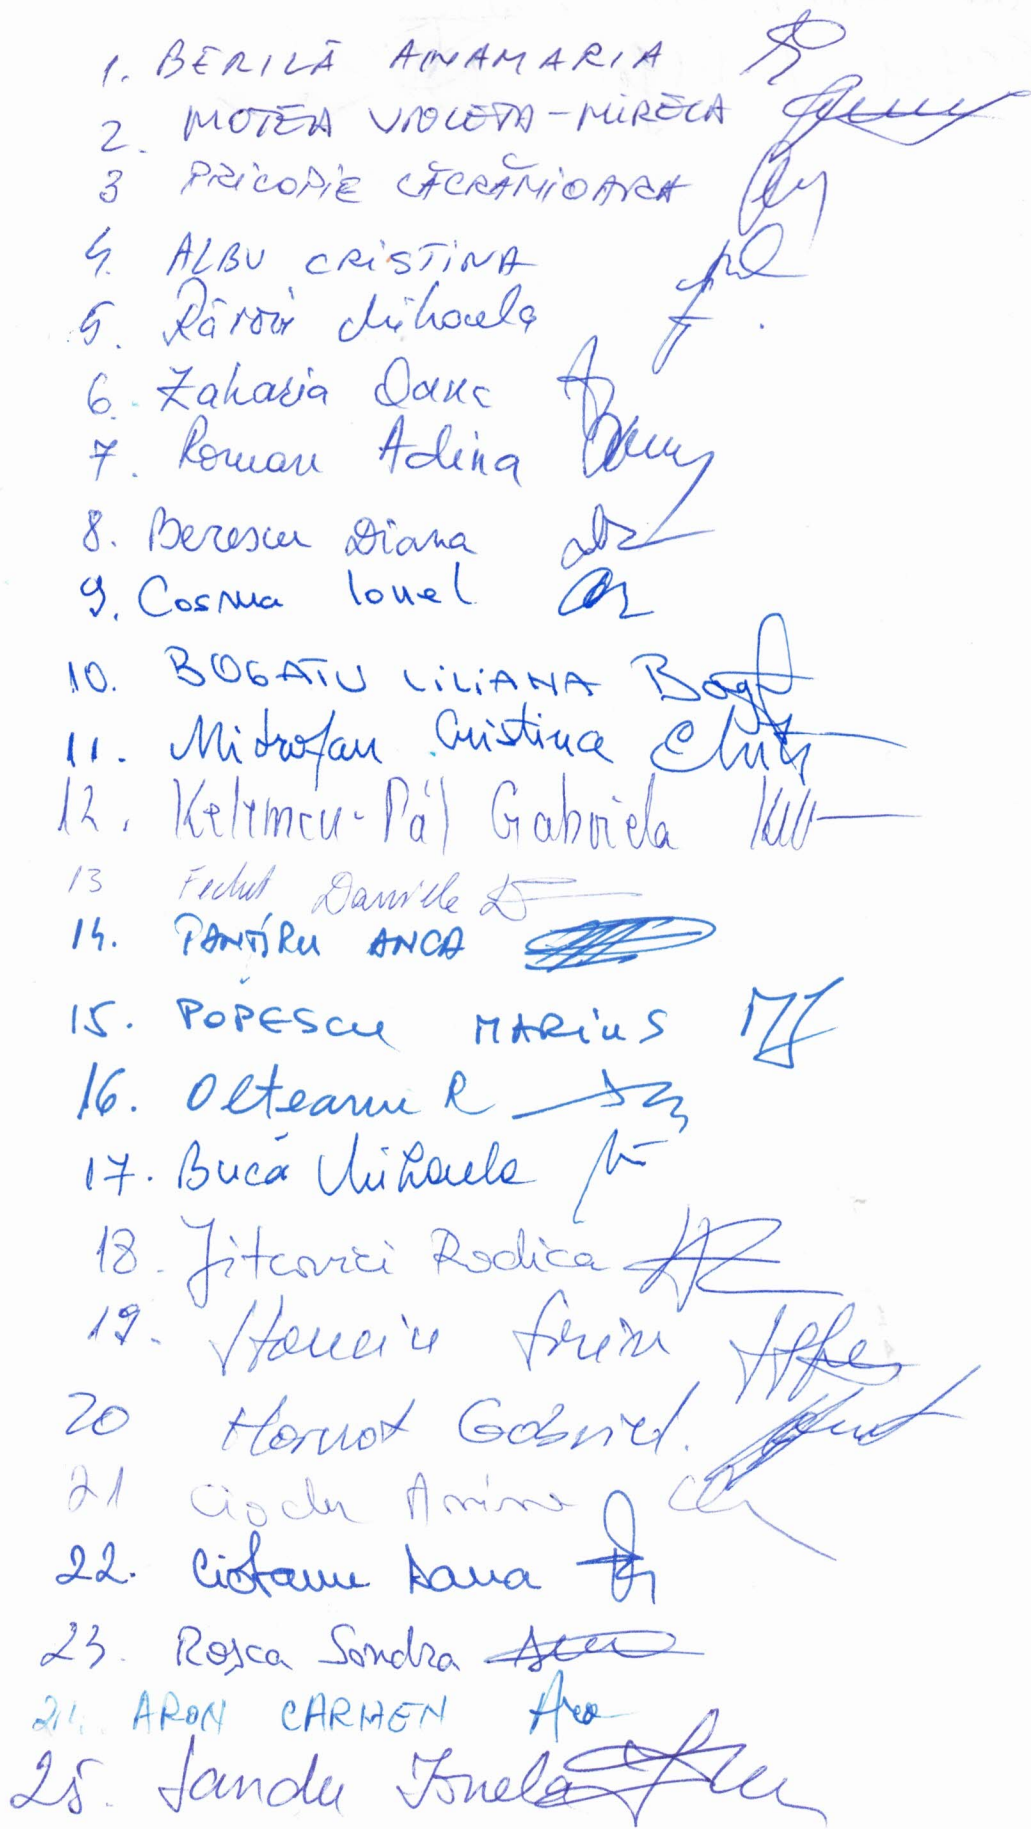 1. BERILĂ ANAMARIA
2. MOTEA VIOLETA-MIRELA
3 PRICOPIE LĂCRĂMIOARA
4. ALBU CRISTINA
5. Mihaela
6. Zaharia Oana
7. Roman Adina
8. Berescu Diana
9. Cosma Ionel
10. BOGATU LILIANA
11. Mitrofan Cristina
12. Kelemen-Pál Gabriela
13 Daniela
14. PANTÎRU ANCA
15. POPESCU MARIUS
16. Olteanu R
17. Bucă Mihaela
18. Jitcovici Rodica
19. Stanciu Sorin
20 Gabriel.
21
22. Ciofanu Dana
23. Roșca Sandra
24. ARON CARMEN
25. Sandu Ionela